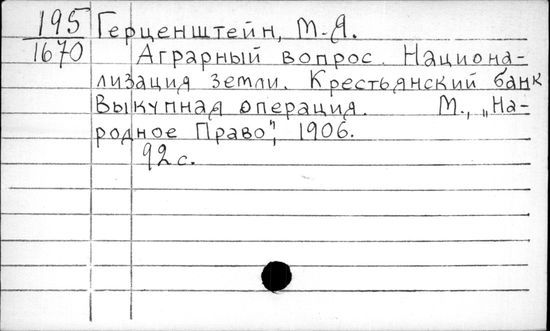 195 Герценштейн, М.Я.
1670 Аграрный вопрос. Национа-
лизация земли. Крестьянский банк
Выкупная операция. М., „На-
родное Право", 1906.
92 с.